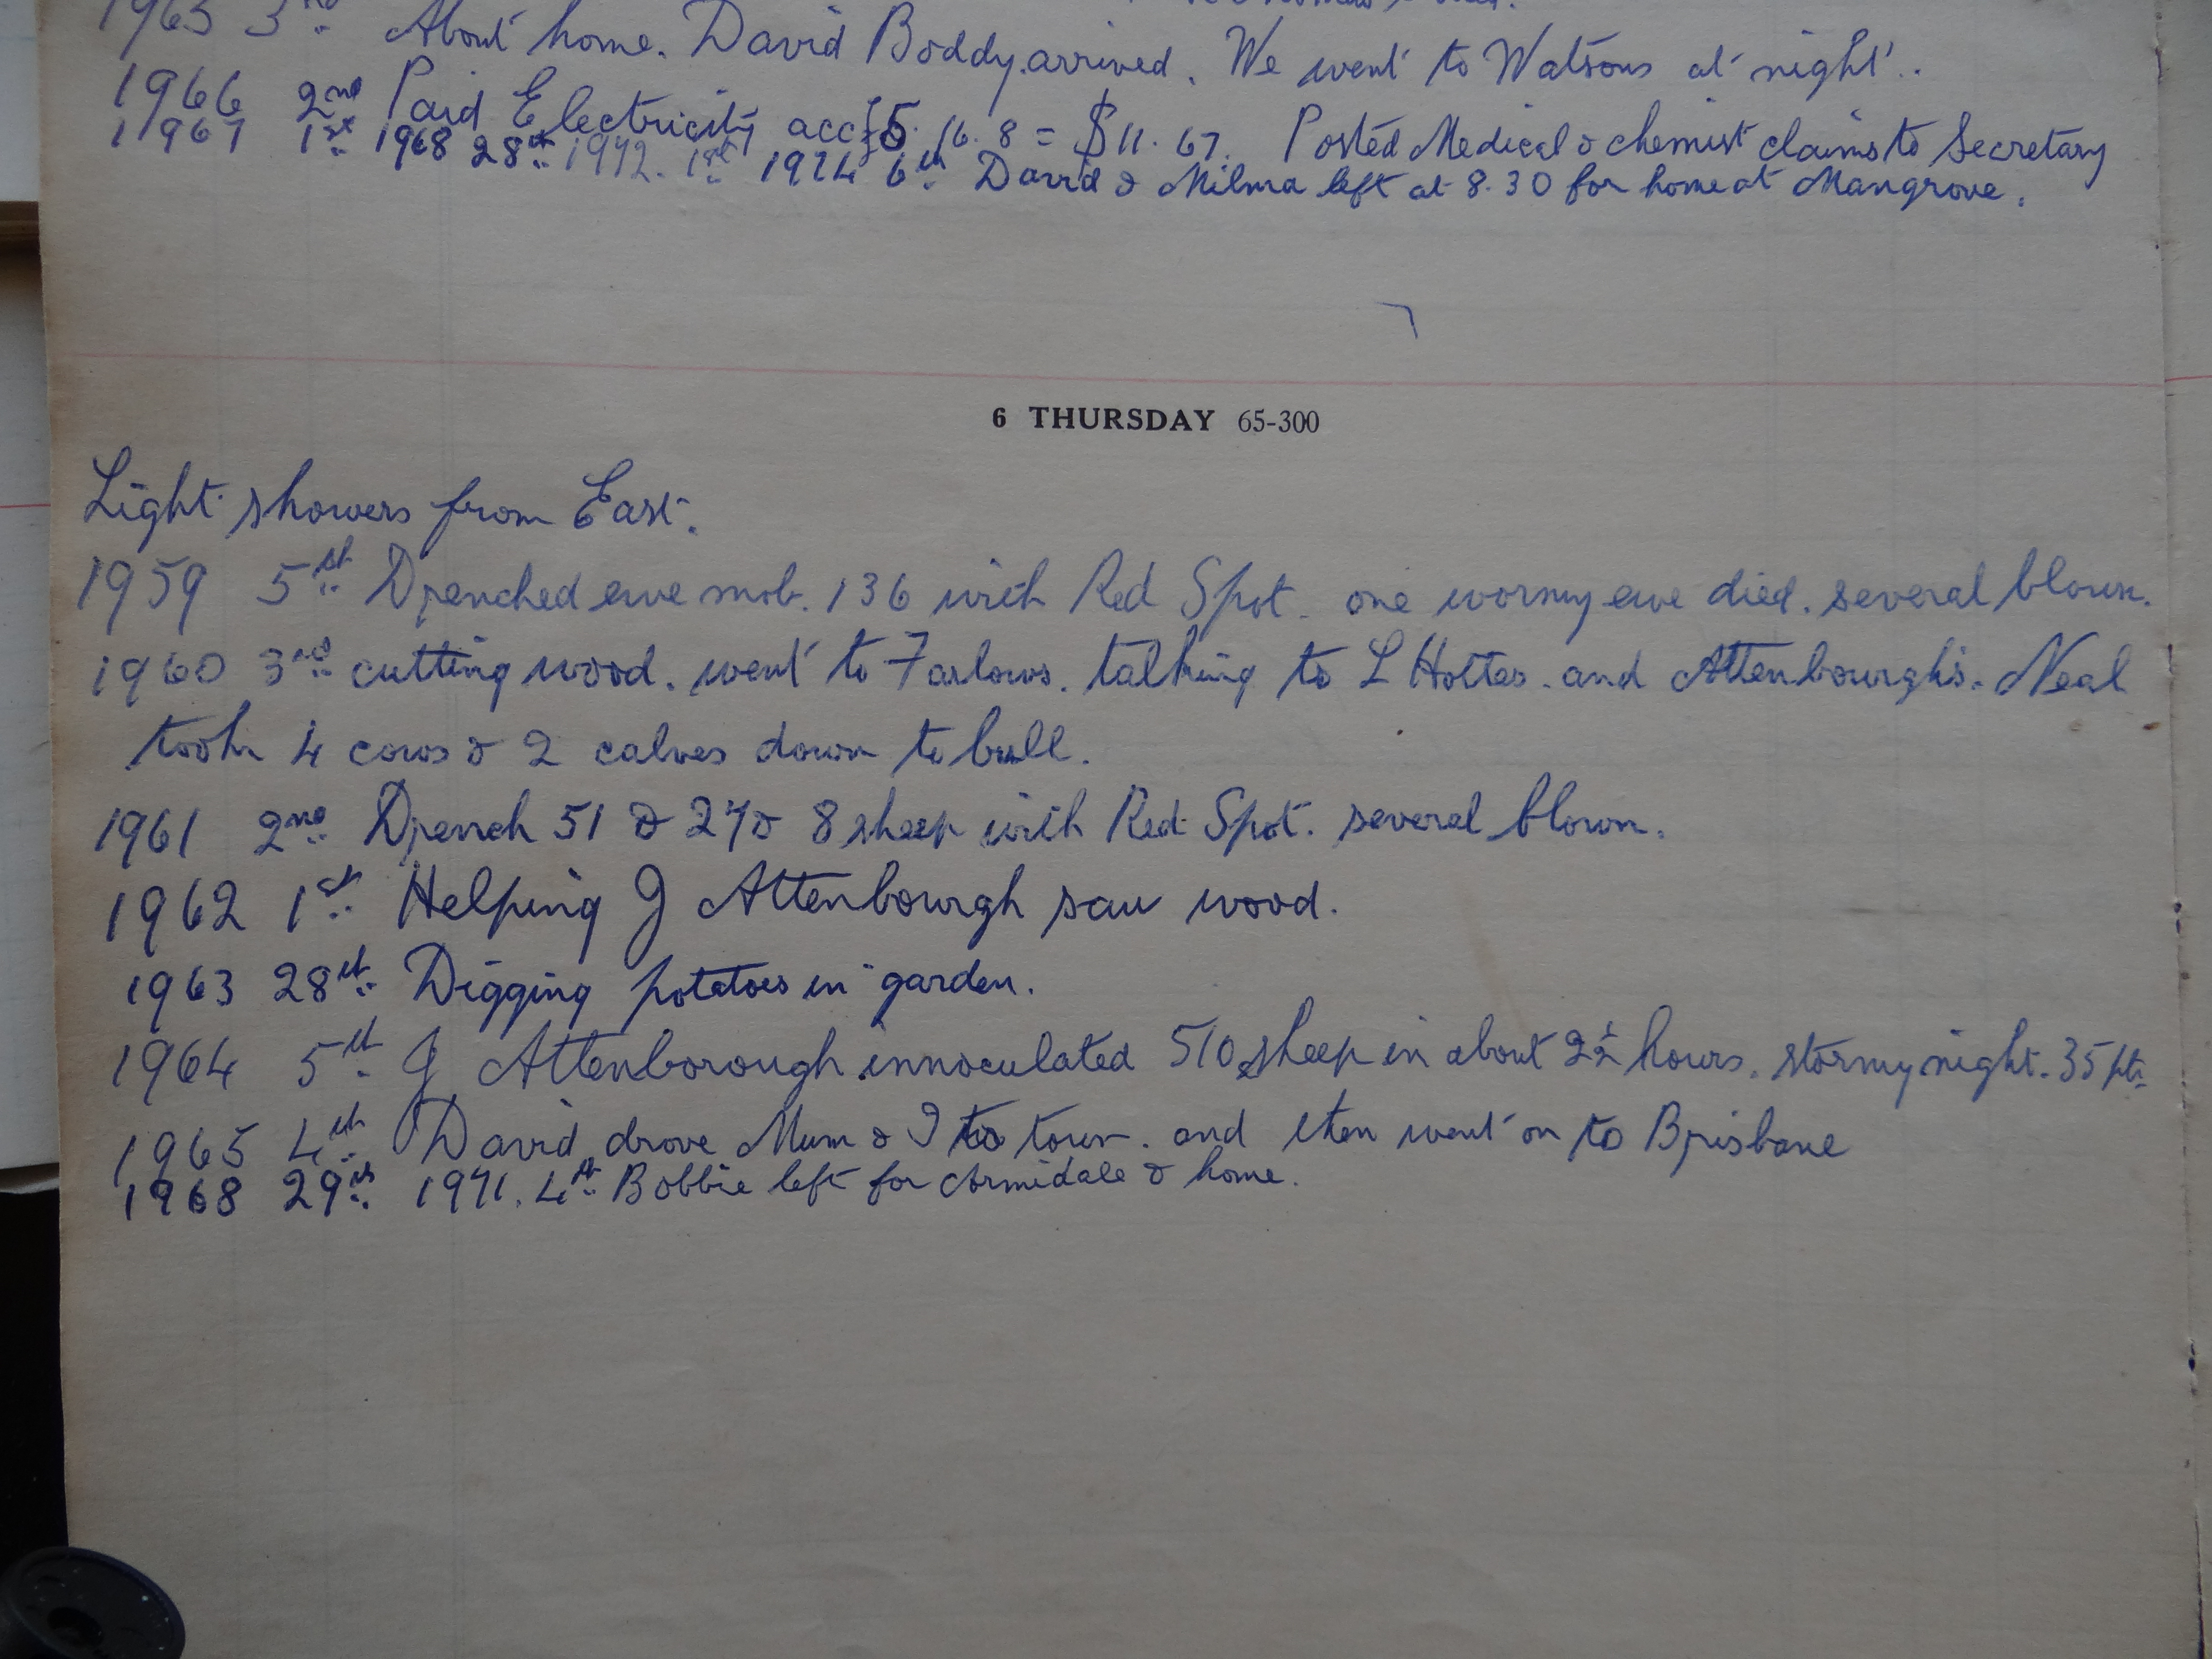 1965 3rd About home. David Boddy arrived. We went to Watsons at night.
1966 2nd Paid Electricity acc £5. 16. 8 = $11. 67. Posted Medical & chemist claims to Secretary
1967 1st 1968 28th 1972. 1st 1974 6th David & Milma left at 8.30 for home at Mangrove.
6 THURSDAY 65-300
Light showers from East.
1959 5th Drenched ewe mob. 136 with Red Spot. one wormy ewe died. several blown.
1960 3rd cutting wood. went to Farlows. talking to L Hotter. and Attenbourghs. Neal
took 4 cows & 2 calves down to bull.
1961 2nd Drench 51 & 27 & 8 sheep with Red Spot. several blown.
1962 1st Helping J Attenbourgh saw wood.
1963 28th Digging potatoes in garden.
1964 5th J Attenborough innoculated 510 sheep in about 2½ hours. stormy night. 35 pts
1965 4th David drove Mum & I to town. and then went on to Brisbane
1968 29th 1971. 4th Bobbie left for Armidale & home.